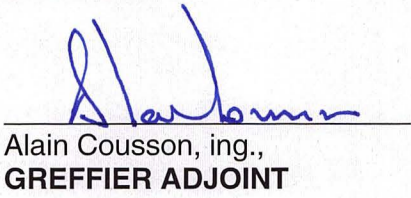 Alain Cousson, ing.,
GREFFIER ADJOINT